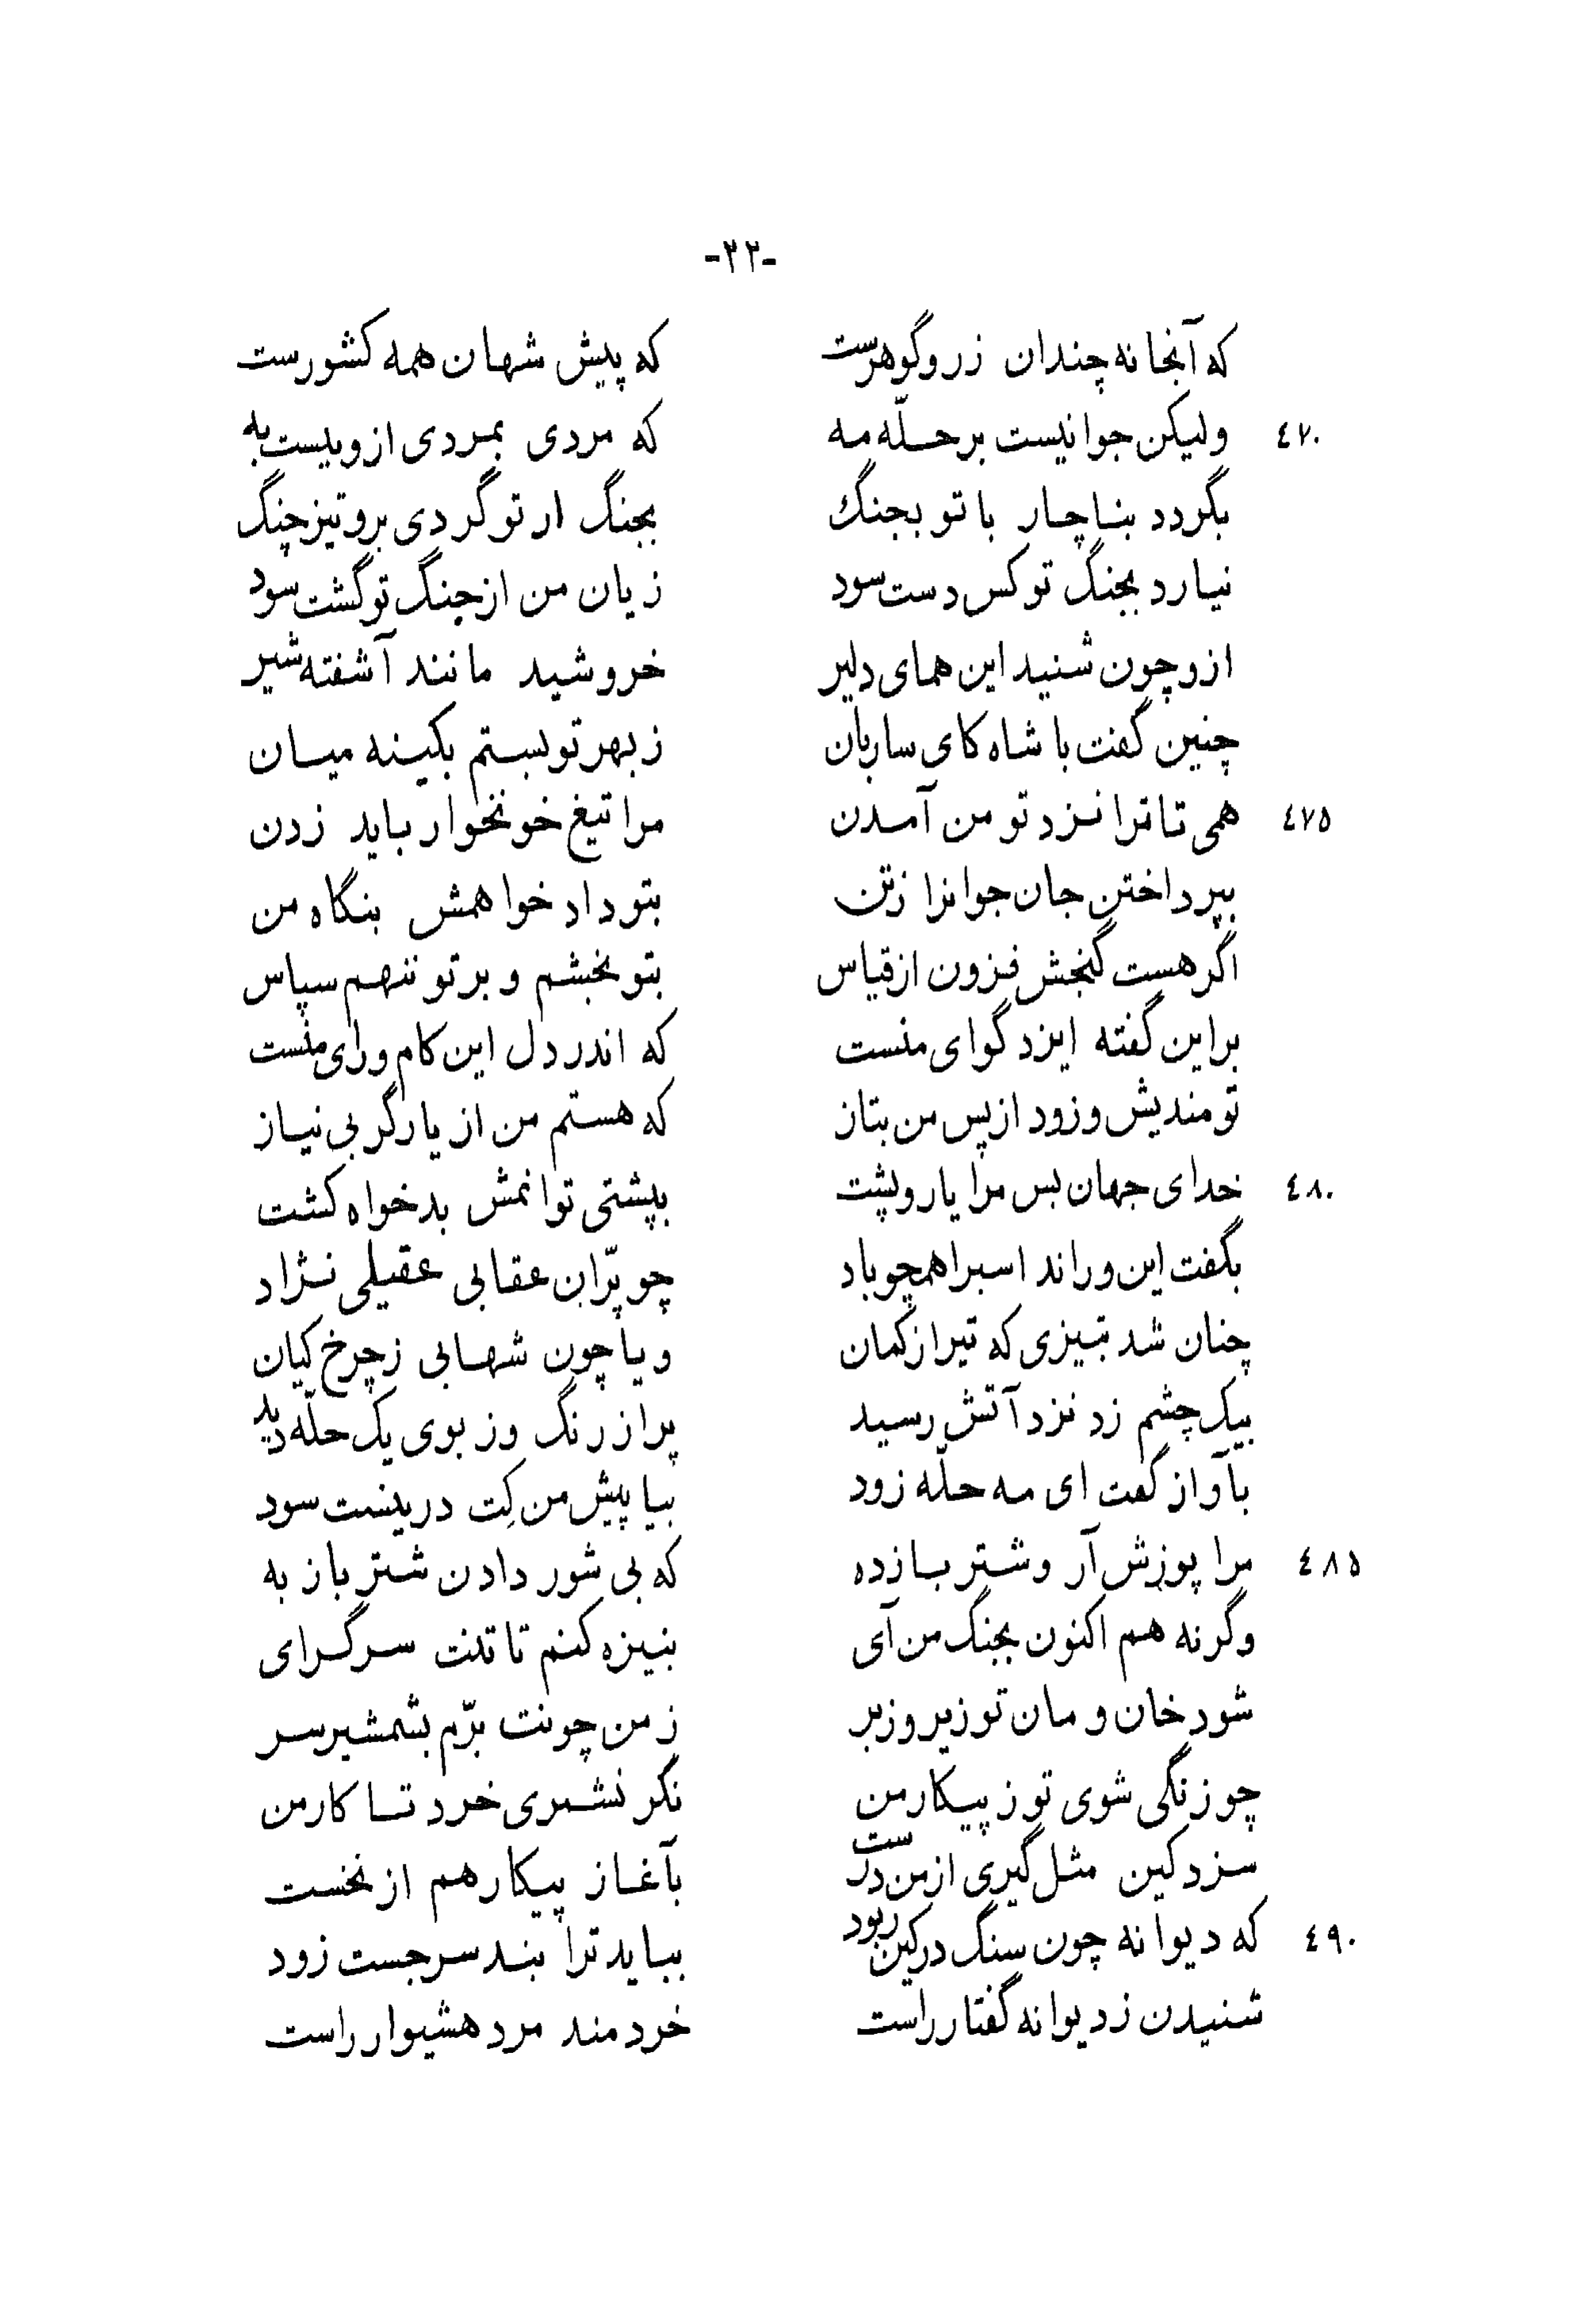 -۲۲-
که آنجا نه چندان زر و گوهرست که پیش شهان همه کشورست
٤٧٠ ولیکن جوانیست بر حلّه مه که مردی بمردی ازو نیست به
بگردد بناچار با تو بجنگ بجنگ ار تو گردی برو تیز چنگ
نیارد بجنگ تو کس دست سود زیان من از چنگ تو گشت سود
ازو چون شنید این همای دلیر خروشید مانند آشفته شیر
چنین گفت با شاه کای ساربان ز بهر تو بستم بکینه میان
٤٧٥ همی تا ترا نزد تو من آمدن مرا تیغ خونخوار باید زدن
بپرداختن جان جوانرا ز تن بتو داد خواهمش بنگاه من
اگر هست گنجش فزون از قیاس بتو بخشم و بر تو ننهم سپاس
بر این گفته ایزد گوای منست که اندر دل این کام و رای منست
تو مندیش و زود از پس من بتاز که هستم من از یارگر بی نیاز
٤٨٠ خدای جهان بس مرا یار و پشت بپشتی توانمش بدخواه کشت
بگفت این و راند اسبرا همچو باد چو پرّان عقابی عقیلی نژاد
چنان شد بتیزی که تیر از کمان و یا چون شهابی ز چرخ کیان
بیک چشم زد نزد آتش رسید پر از رنگ وز بوی یک حلّه دید
بآواز گفت ای مه حلّه زود بیا پیش من کِت درینست سود
٤٨٥ مرا پوزش آر و شتر باز ده که بی شور دادن شتر باز به
و گر نه هم اکنون بجنگ من آی بنیزه کنم تا تنت سرگرای
شود خان و مان تو زیر و زبر ز من چونت برّم بشمشیر سر
چو زنگی شوی تو ز پیکار من نگر نشمری خرد تا کار من
سزد کین مثل گیری از من درست بآغاز پیکار هم از نخست
٤٩٠ که دیوانه چون سنگ در کین ربود بباید ترا بند سر جست زود
شنیدن ز دیوانه گفتار راست خردمند مرد هشیوار راست